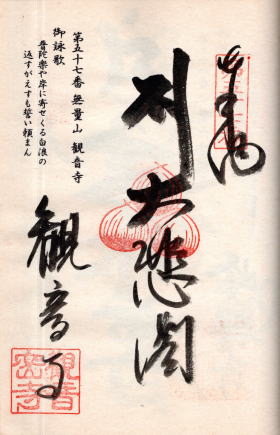 奉拝
大悲閣
観音寺
第五十七番 無量山 観音寺
御詠歌
普陀楽や岸に寄せくる白浪の
返すがえすも誓い頼まん